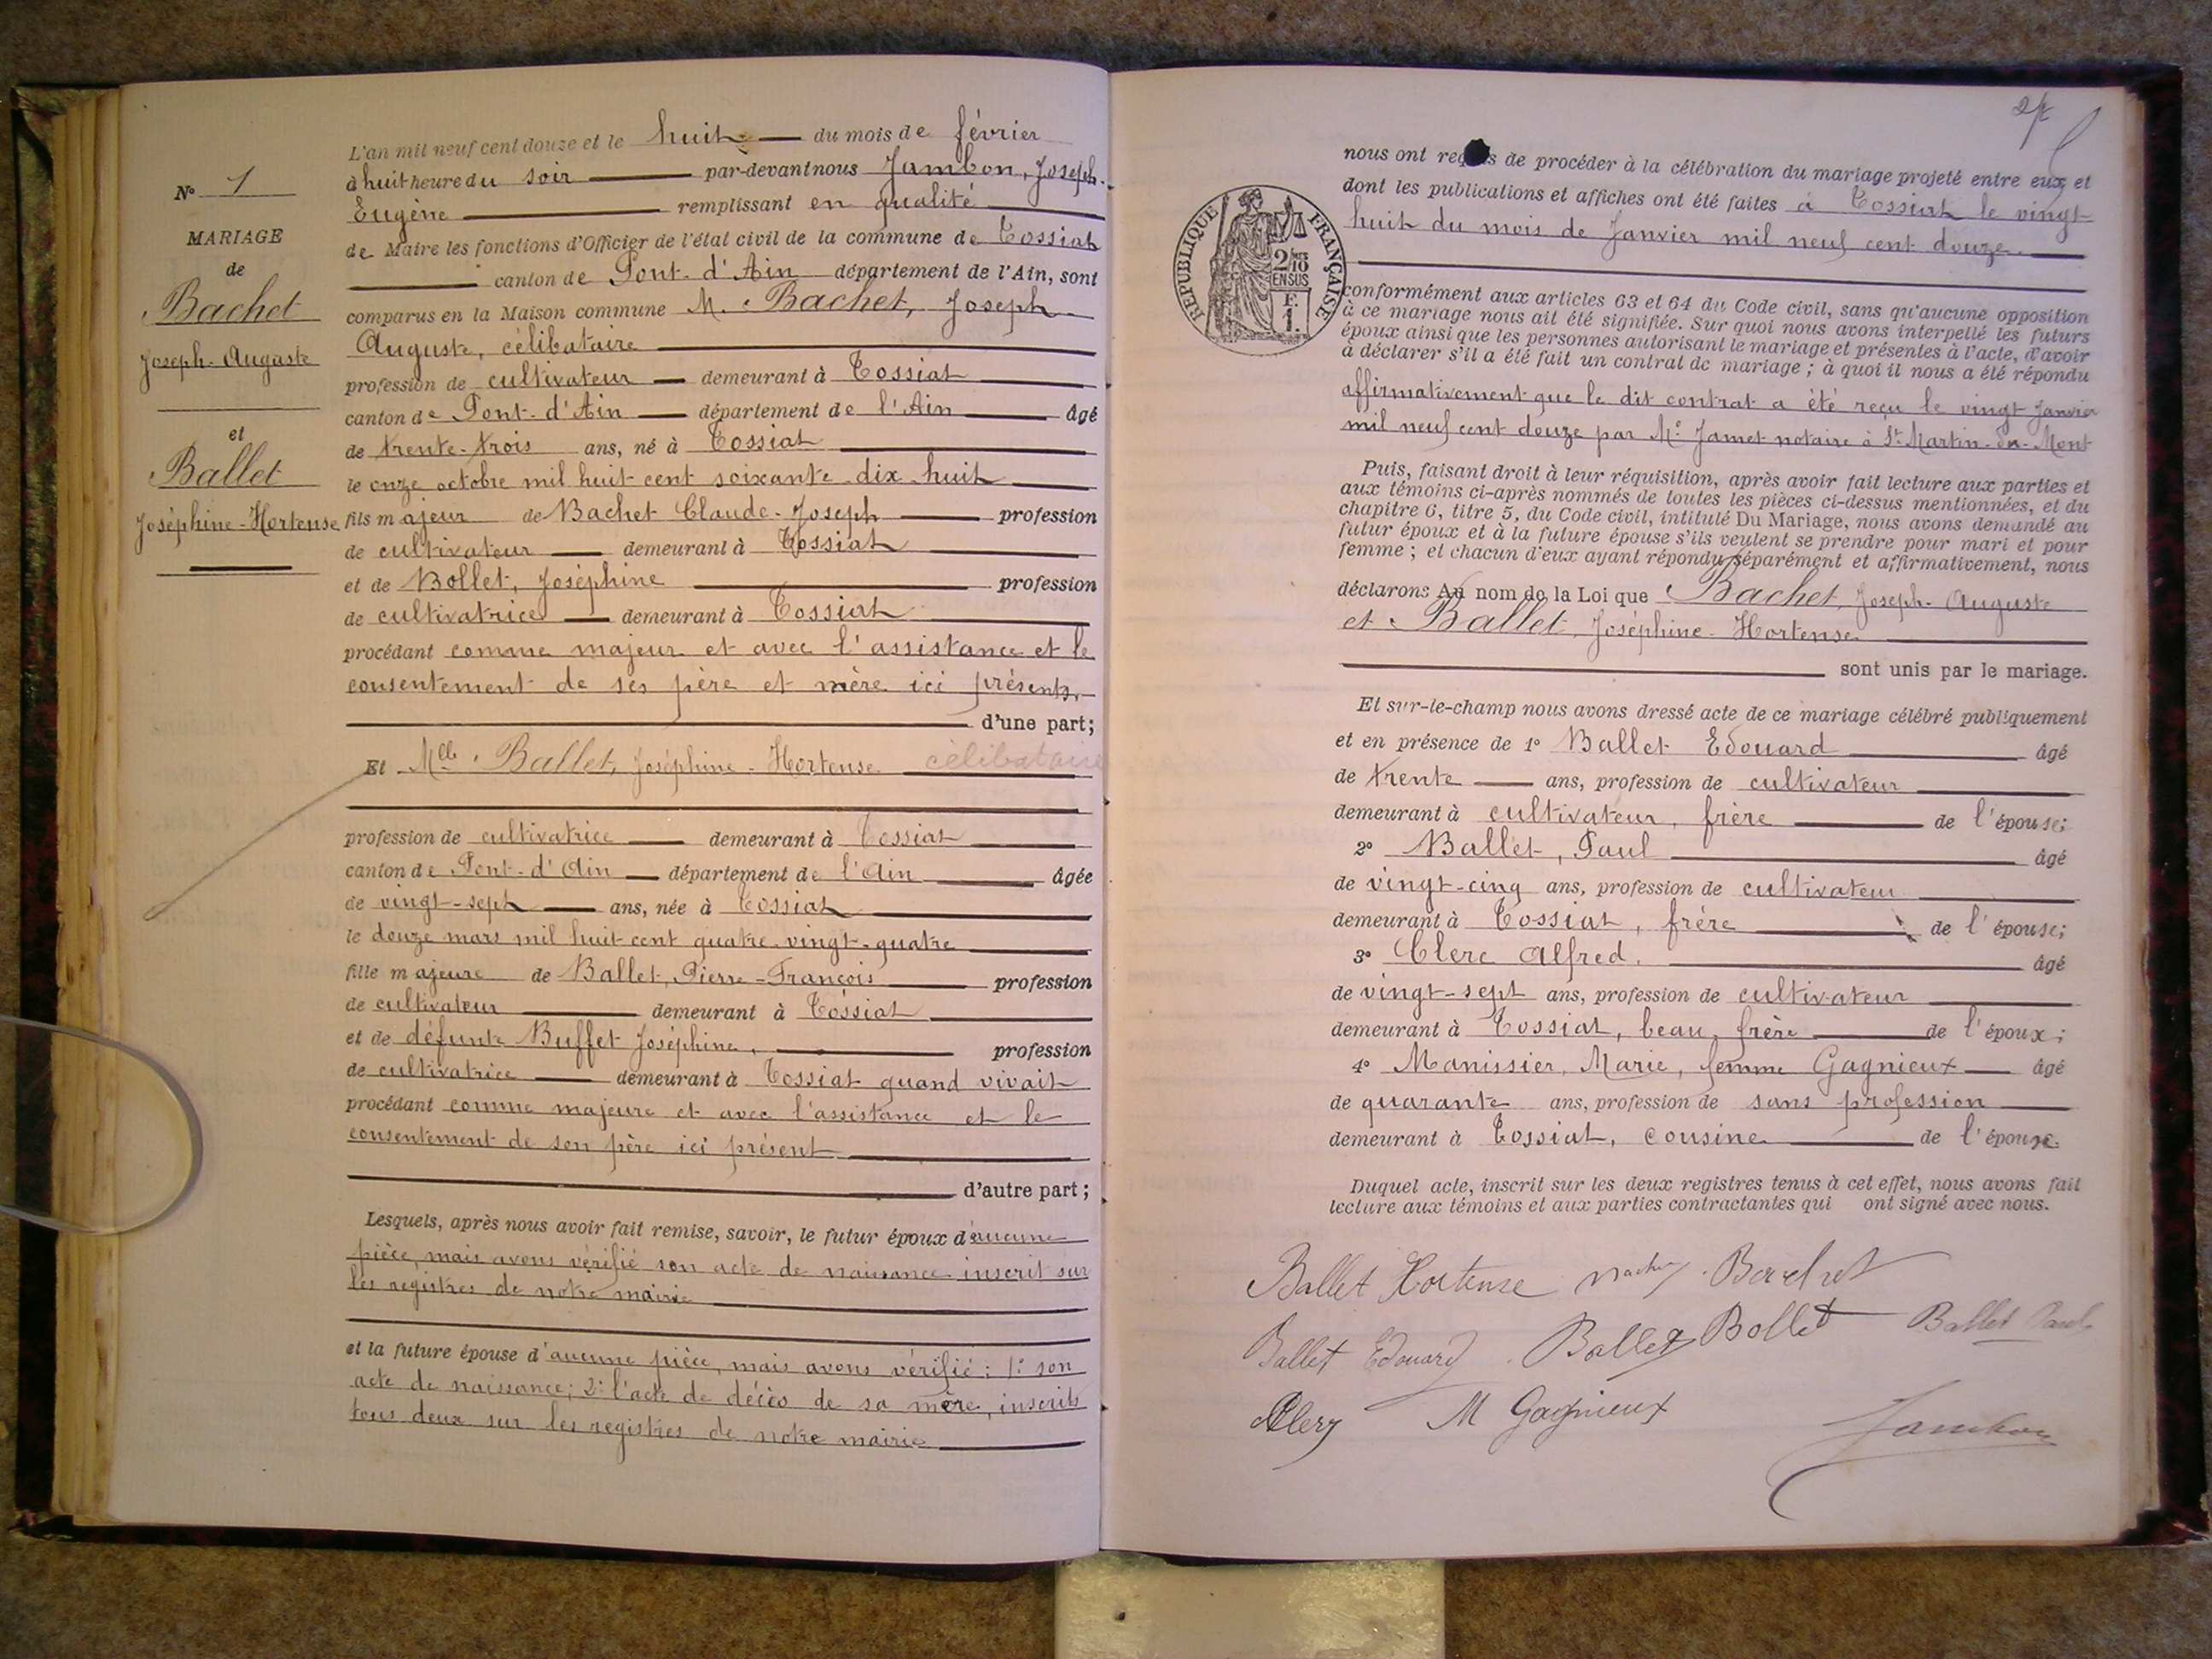 N° 1
MARIAGE
de
Bachet
Joseph-Auguste
et
Ballet
Joséphine-Hortense
L'an mil neuf cent douze et le huit du mois de février
à huit heure du soir par-devant nous Jambon, Joseph-
Eugène remplissant en qualité
de Maire les fonctions d'Officier de l'état civil de la commune de Tossiat
canton de Pont-d'Ain département de l'Ain, sont
comparus en la Maison commune M. Bachet, Joseph-
Auguste, célibataire
profession de cultivateur demeurant à Tossiat
canton de Pont-d'Ain département de l'Ain âgé
de trente-trois ans, né à Tossiat
le onze octobre mil huit cent soixante-dix-huit
fils majeur de Bachet Claude-Joseph profession
de cultivateur demeurant à Tossiat
et de Bollet, Joséphine profession
de cultivatrice demeurant à Tossiat
procédant comme majeur et avec l'assistance et le
consentement de ses père et mère ici présents,
d'une part;
Et Mlle Ballet, Joséphine-Hortense célibataire
profession de cultivatrice demeurant à Tossiat
canton de Pont-d'Ain département de l'Ain âgée
de vingt-sept ans, née à Tossiat
le douze mars mil huit cent quatre-vingt-quatre
fille majeure de Ballet, Pierre-François profession
de cultivateur demeurant à Tossiat
et de défunte Buffet Joséphine, profession
de cultivatrice demeurant à Tossiat quand vivait
procédant comme majeure et avec l'assistance et le
consentement de son père ici présent
d'autre part;
Lesquels, après nous avoir fait remise, savoir, le futur époux d'aucune
pièce, mais avons vérifié son acte de naissance inscrit sur
les registres de notre mairie
et la future épouse d'aucune pièce, mais avons vérifié: 1° son
acte de naissance; 2° l'acte de décès de sa mère, inscrits
tous deux sur les registres de notre mairie
nous ont requis de procéder à la célébration du mariage projeté entre eux et
dont les publications et affiches ont été faites à Tossiat le vingt-
huit du mois de Janvier mil neuf cent douze
RÉPUBLIQUE FRANÇAISE
2/10
EN SUS
F.
1.
conformément aux articles 63 et 64 du Code civil, sans qu'aucune opposition
à ce mariage nous ait été signifiée. Sur quoi nous avons interpellé les futurs
époux ainsi que les personnes autorisant le mariage et présentes à l'acte, d'avoir
à déclarer s'il a été fait un contrat de mariage; à quoi il nous a été répondu
affirmativement que le dit contrat a été reçu le vingt Janvier
mil neuf cent douze par Me Jamet notaire à St Martin-du-Mont
Puis, faisant droit à leur réquisition, après avoir fait lecture aux parties et
aux témoins ci-après nommés de toutes les pièces ci-dessus mentionnées, et du
chapitre 6, titre 5, du Code civil, intitulé Du Mariage, nous avons demandé au
futur époux et à la future épouse s'ils veulent se prendre pour mari et pour
femme; et chacun d'eux ayant répondu séparément et affirmativement, nous
déclarons Au nom de la Loi que Bachet, Joseph-Auguste
et Ballet Joséphine-Hortense
sont unis par le mariage.
Et sur-le-champ nous avons dressé acte de ce mariage célébré publiquement
et en présence de 1° Ballet Edouard âgé
de trente ans, profession de cultivateur
demeurant à cultivateur, frère de l'épouse;
2° Ballet, Paul âgé
de vingt-cinq ans, profession de cultivateur
demeurant à Tossiat, frère de l'épouse;
3° Clerc Alfred. âgé
de vingt-sept ans, profession de cultivateur
demeurant à Tossiat, beau-frère de l'époux;
4° Manissier, Marie, femme Gagnieux âgé
de quarante ans, profession de sans profession
demeurant à Tossiat, cousine de l'épouse.
Duquel acte, inscrit sur les deux registres tenus à cet effet, nous avons fait
lecture aux témoins et aux parties contractantes qui ont signé avec nous.
Ballet Hortense Bachet
Ballet Edouard Ballet Bollet Ballet Paul
Clerc M Gagnieux Jambon